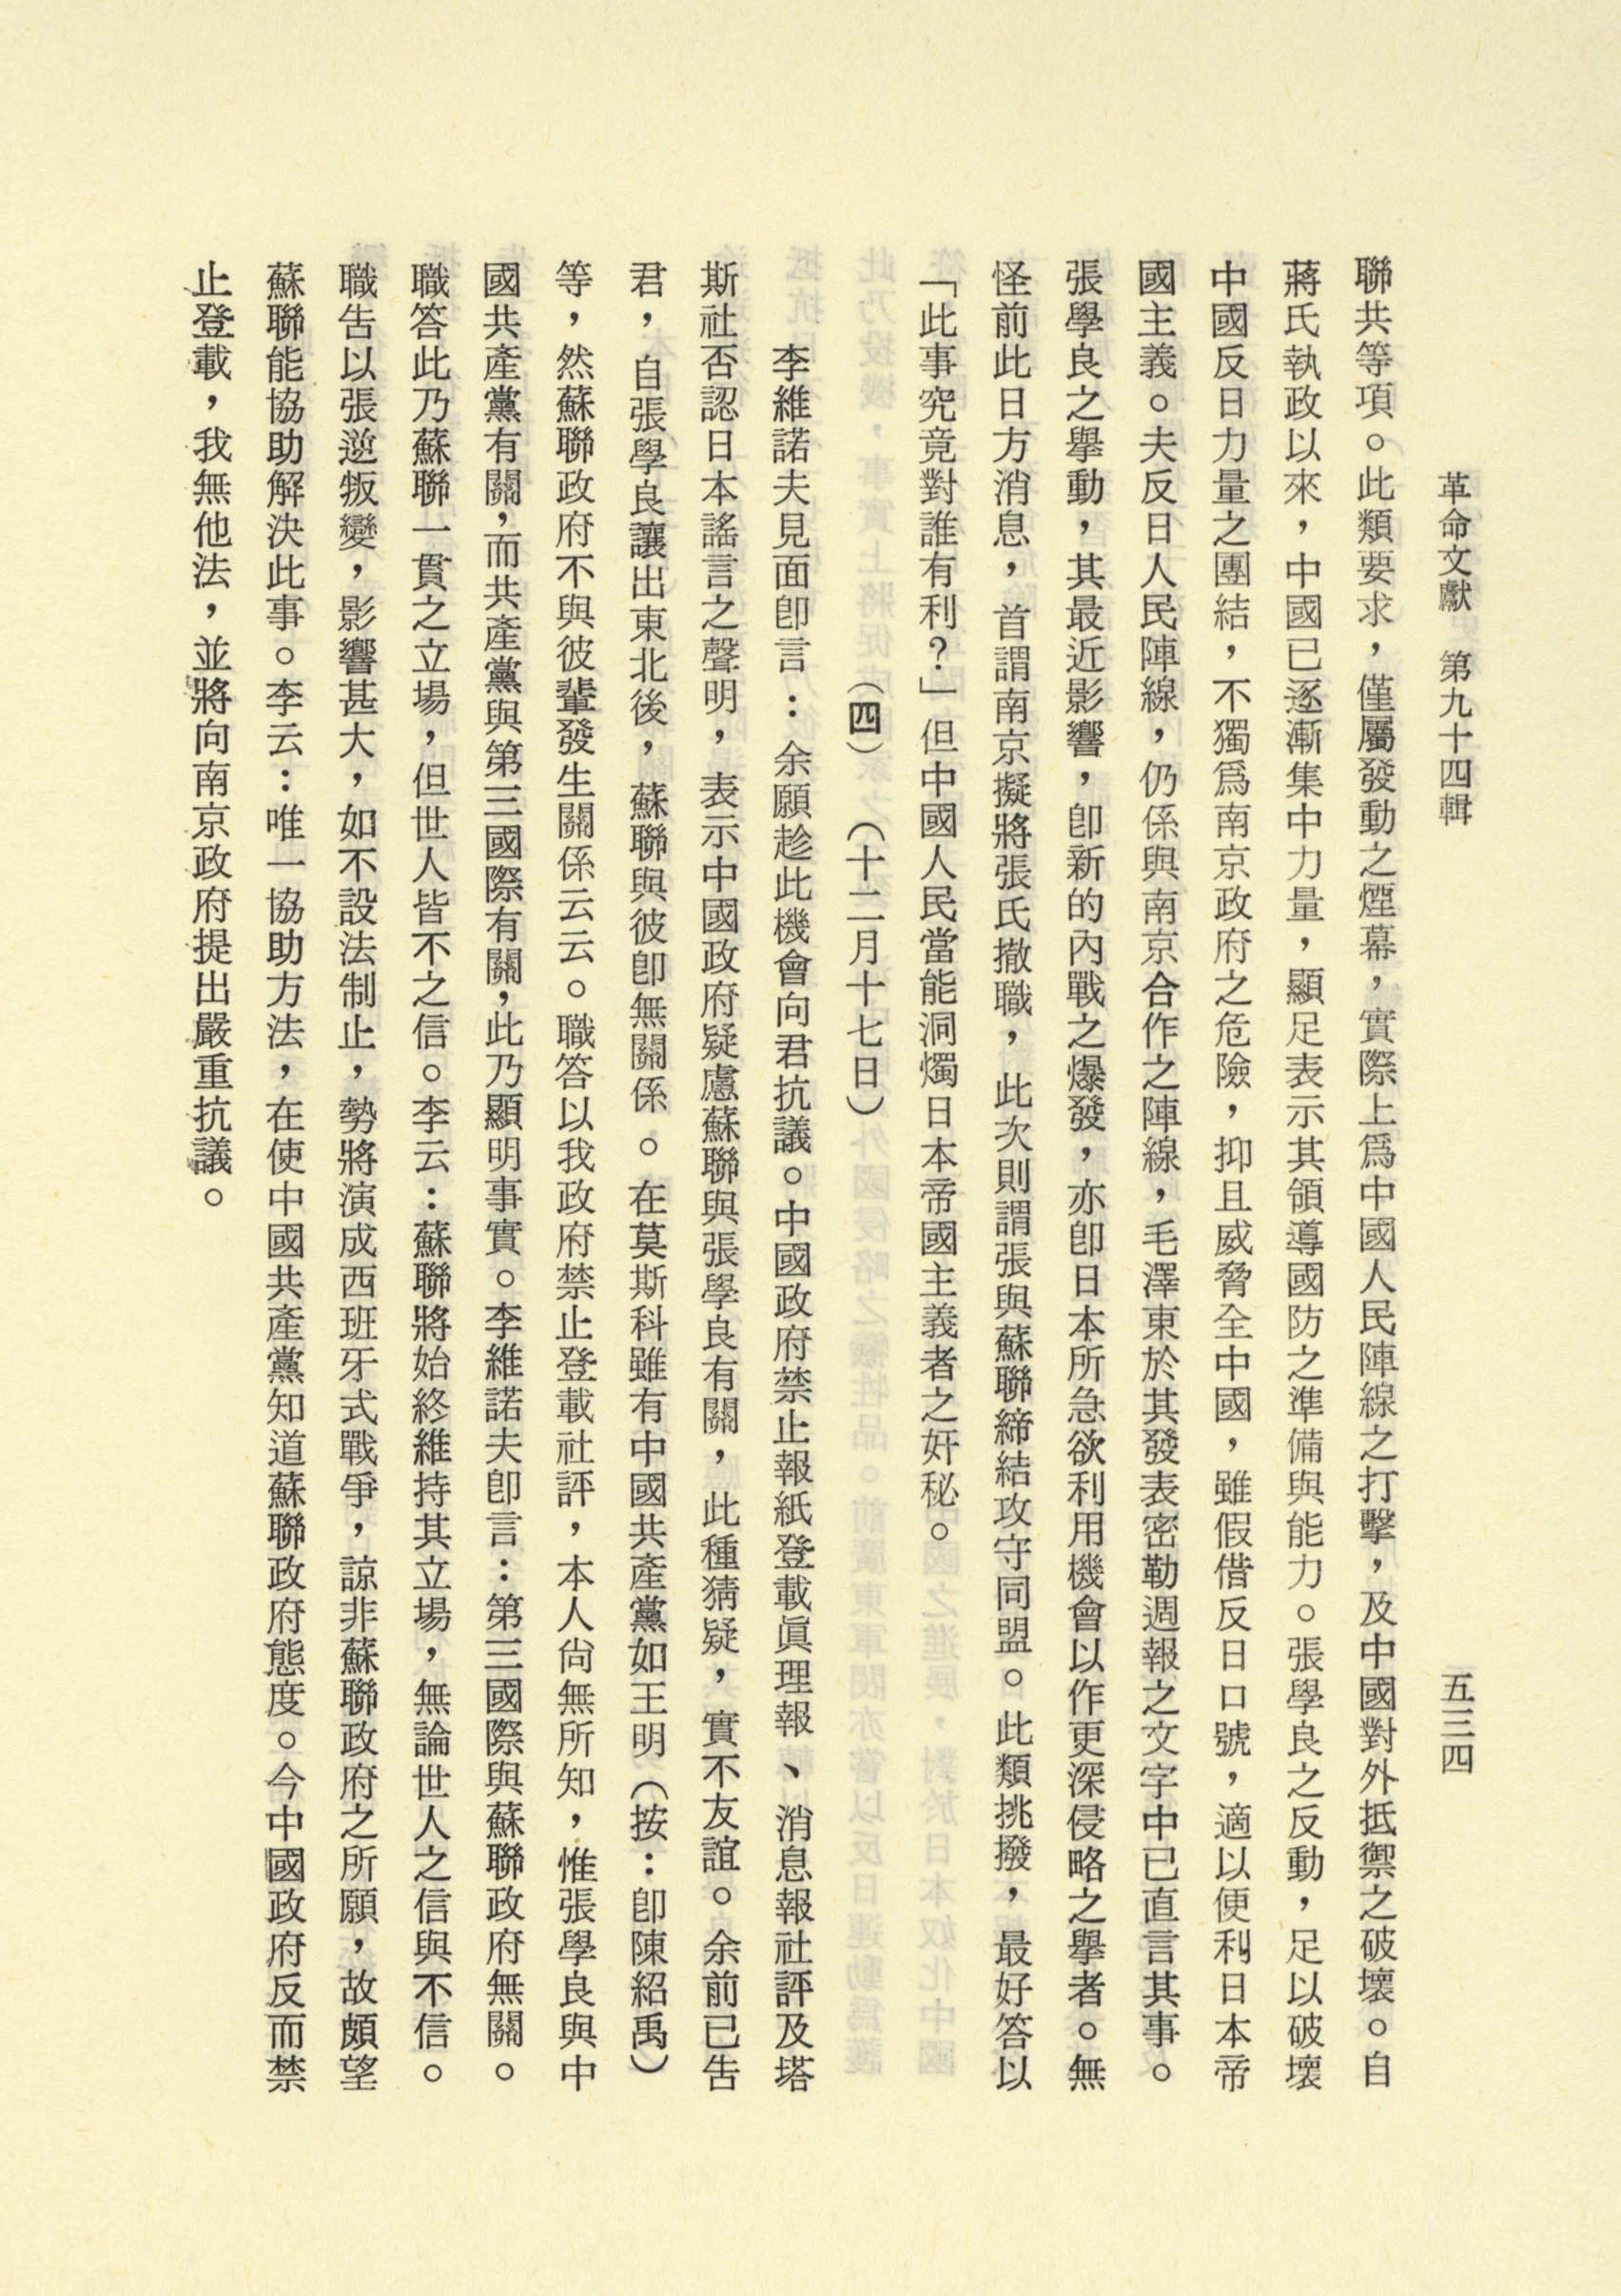 革命文獻　第九十四輯　五三四
聯共等項。此類要求，僅屬發動之煙幕，實際上爲中國人民陣線之打擊，及中國對外抵禦之破壞。自
蔣氏執政以來，中國已逐漸集中力量，顯足表示其領導國防之準備與能力。張學良之反動，足以破壞
中國反日力量之團結，不獨爲南京政府之危險，抑且威脅全中國，雖假借反日口號，適以便利日本帝
國主義。夫反日人民陣線，仍係與南京合作之陣線，毛澤東於其發表密勒週報之文字中已直言其事。
張學良之舉動，其最近影響，卽新的內戰之爆發，亦卽日本所急欲利用機會以作更深侵略之舉者。無
怪前此日方消息，首謂南京擬將張氏撤職，此次則謂張與蘇聯締結攻守同盟。此類挑撥，最好答以
「此事究竟對誰有利？」但中國人民當能洞燭日本帝國主義者之奸秘。
（四）（十二月十七日）
李維諾夫見面卽言：余願趁此機會向君抗議。中國政府禁止報紙登載眞理報、消息報社評及塔
斯社否認日本謠言之聲明，表示中國政府疑慮蘇聯與張學良有關，此種猜疑，實不友誼。余前已吿
君，自張學良讓出東北後，蘇聯與彼卽無關係。在莫斯科雖有中國共產黨如王明（按：卽陳紹禹）
等，然蘇聯政府不與彼輩發生關係云云。職答以我政府禁止登載社評，本人尙無所知，惟張學良與中
國共產黨有關，而共產黨與第三國際有關，此乃顯明事實。李維諾夫卽言：第三國際與蘇聯政府無關。
職答此乃蘇聯一貫之立場，但世人皆不之信。李云：蘇聯將始終維持其立場，無論世人之信與不信。
職吿以張逆叛變，影響甚大，如不設法制止，勢將演成西班牙式戰爭，諒非蘇聯政府之所願，故頗望
蘇聯能協助解決此事。李云：唯一協助方法，在使中國共產黨知道蘇聯政府態度。今中國政府反而禁
止登載，我無他法，並將向南京政府提出嚴重抗議。